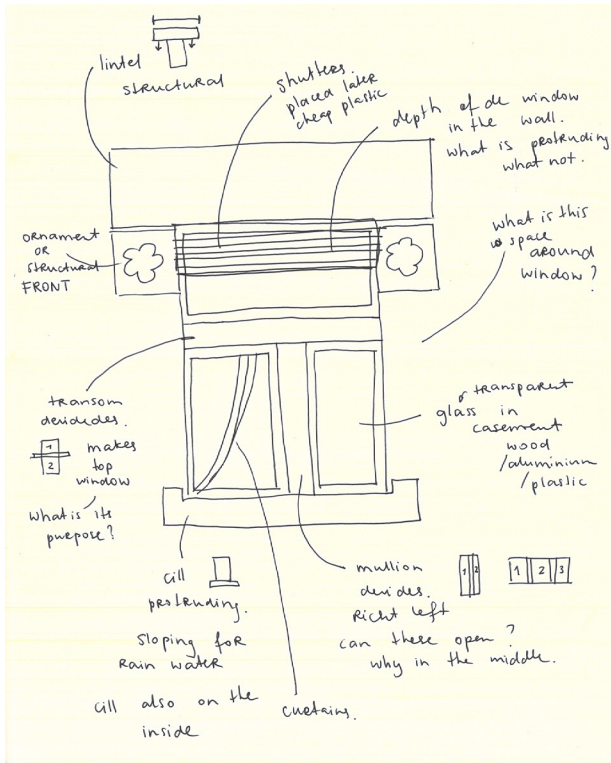 lintel
structural
shutters.
placed later
cheap plastic
depth of de window
in the wall.
what is protruding
what not.
ornament
OR
structural
FRONT
what is this
space
around
window?
transom
devideds.
1
2
makes
top
window
what is its
purpose?
transparent
glass in
casement
wood
/aluminium
/plastic
cill
protruding.
sloping for
Rain water
cill also on the
inside
curtains.
mullion
devides.
Right left
can these open?
why in the middle.
1 2
1 2 3